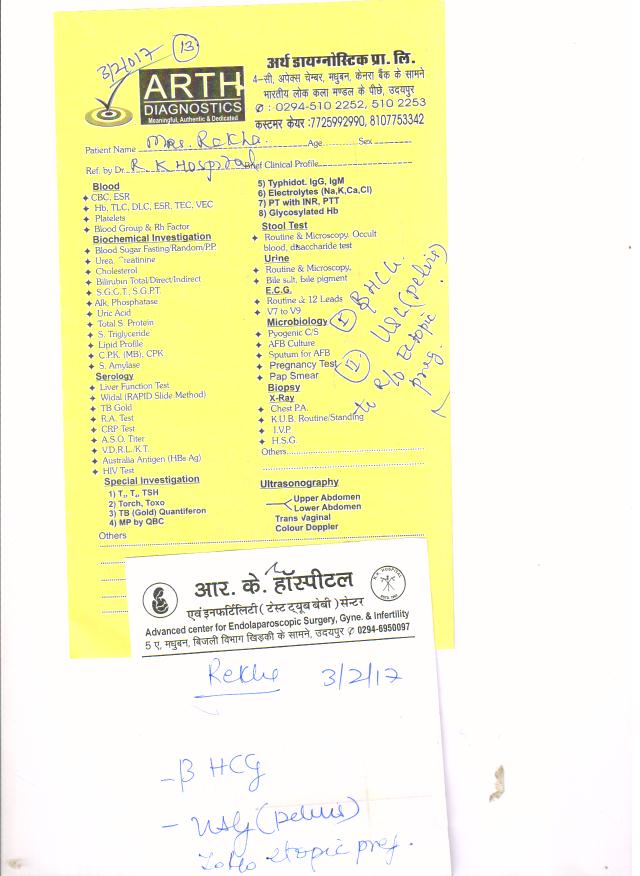 3/2/017 (13)
ARTH
DIAGNOSTICS
Meaningful, Authentic & Dedicated
अर्थ डायग्नोस्टिक प्रा. लि.
4–सी, अपेक्स चेम्बर, मधुबन, केनरा बैंक के सामने
भारतीय लोक कला मण्डल के पीछे, उदयपुर
✆ : 0294-510 2252, 510 2253
कस्टमर केयर :7725992990, 8107753342
Patient Name Mrs. Rekha. Age Sex
Ref. by Dr. R K Hospital Brief Clinical Profile
Blood
CBC, ESR
Hb, TLC, DLC, ESR, TEC, VEC
Platelets
Blood Group & Rh Factor
Biochemical Investigation
Blood Sugar Fasting/Random/P.P.
Urea, Creatinine
Cholesterol
Bilirubin Total/Direct/Indirect
S.G.O.T., S.G.P.T.
Alk. Phosphatase
Uric Acid
Total S. Protein
S. Triglyceride
Lipid Profile
C.P.K. (MB), CPK
S. Amylase
Serology
Liver Function Test
Widal (RAPID Slide Method)
TB Gold
R.A. Test
CRP Test
A.S.O. Titer
V.D.R.L./K.T.
Australia Antigen (HBs Ag)
HIV Test
Special Investigation
1) T₃, T₄, TSH
2) Torch, Toxo
3) TB (Gold) Quantiferon
4) MP by QBC
Others
5) Typhidot. IgG, IgM
6) Electrolytes (Na,K,Ca,Cl)
7) PT with INR, PTT
8) Glycosylated Hb
Stool Test
Routine & Microscopy, Occult
blood, disaccharide test
Urine
Routine & Microscopy,
Bile salt, bile pigment
E.C.G.
Routine & 12 Leads
V7 to V9
Microbiology
Pyogenic C/S
AFB Culture
Sputum for AFB
Pregnancy Test
Pap Smear
Biopsy
X-Ray
Chest P.A.
K.U.B. Routine/Standing
I.V.P.
H.S.G.
Others
Ultrasonography
Upper Abdomen
Lower Abdomen
Trans Vaginal
Colour Doppler
① β HCG.
① USG (pelvis)
to R/o Ectopic
preg.
आर. के. हॉस्पीटल
एवं इनफर्टिलिटी ( टेस्ट ट्यूब बेबी ) सेन्टर
Advanced center for Endolaparoscopic Surgery, Gyne. & Infertility
5 ए, मधुबन, बिजली विभाग खिड़की के सामने, उदयपुर ✆ 0294-6950097
Rekha 3/2/17
- β HCG
- USG (pelvis)
etopic preg.